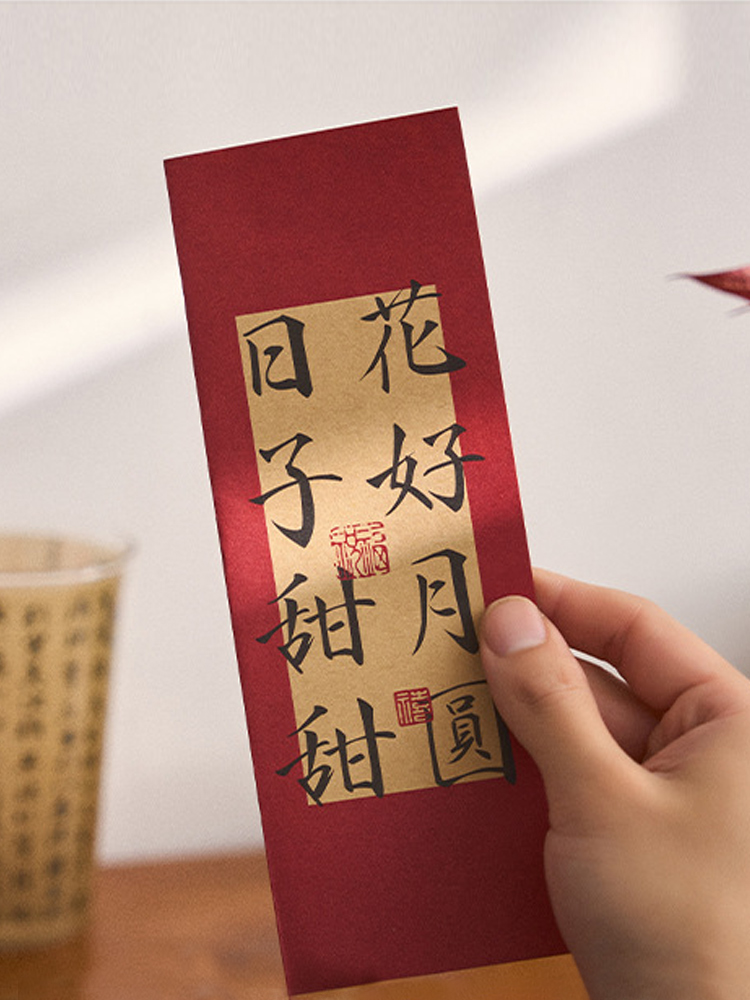 花好月圓
日子甜甜